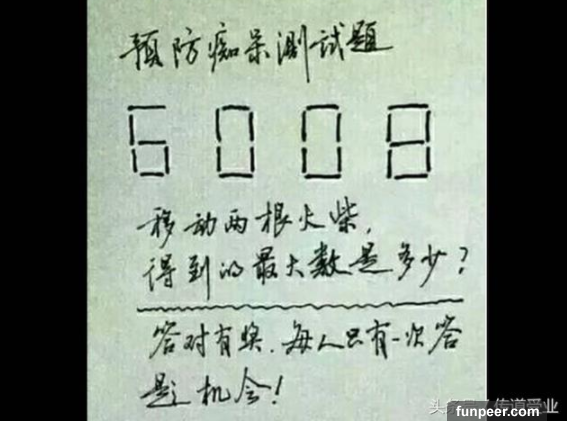 预防痴呆测试题
6008
移动两根火柴,
得到的最大数是多少?
答对有奖.每人只有一次答
题机会!
头条号/传道受业
funpeer.com